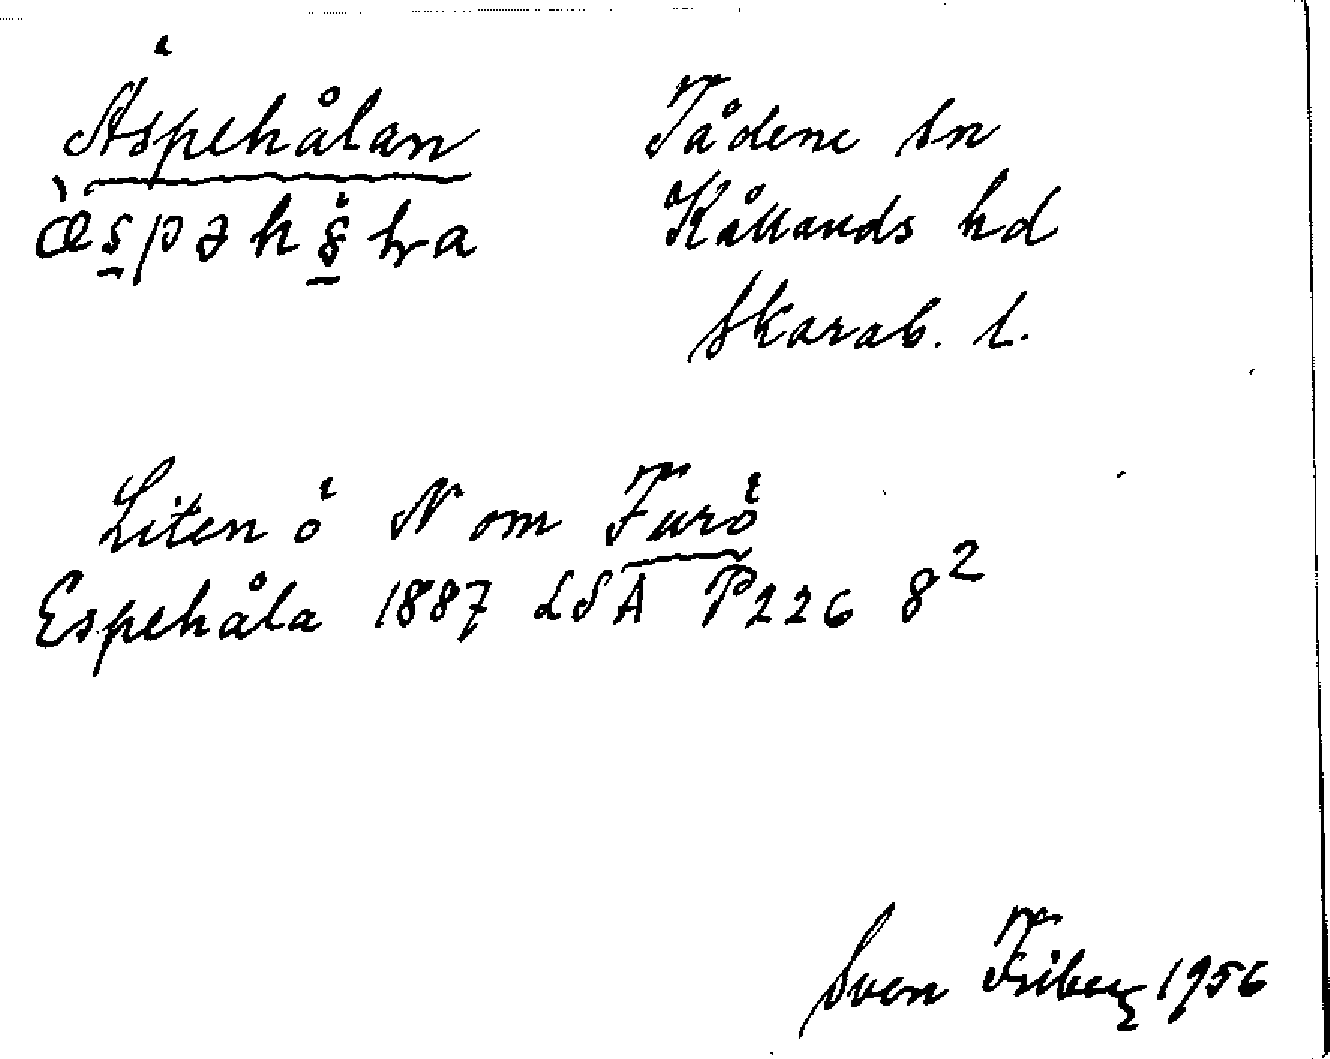 Äspehålan
Tådene sn
Kållands hd
Skarab. l.
Liten ö N om Furö
Espehåla 1887 LSA P226 8²
Sven Friberg 1956